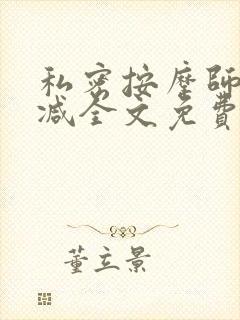 私密按摩師
减全文免費
董立景